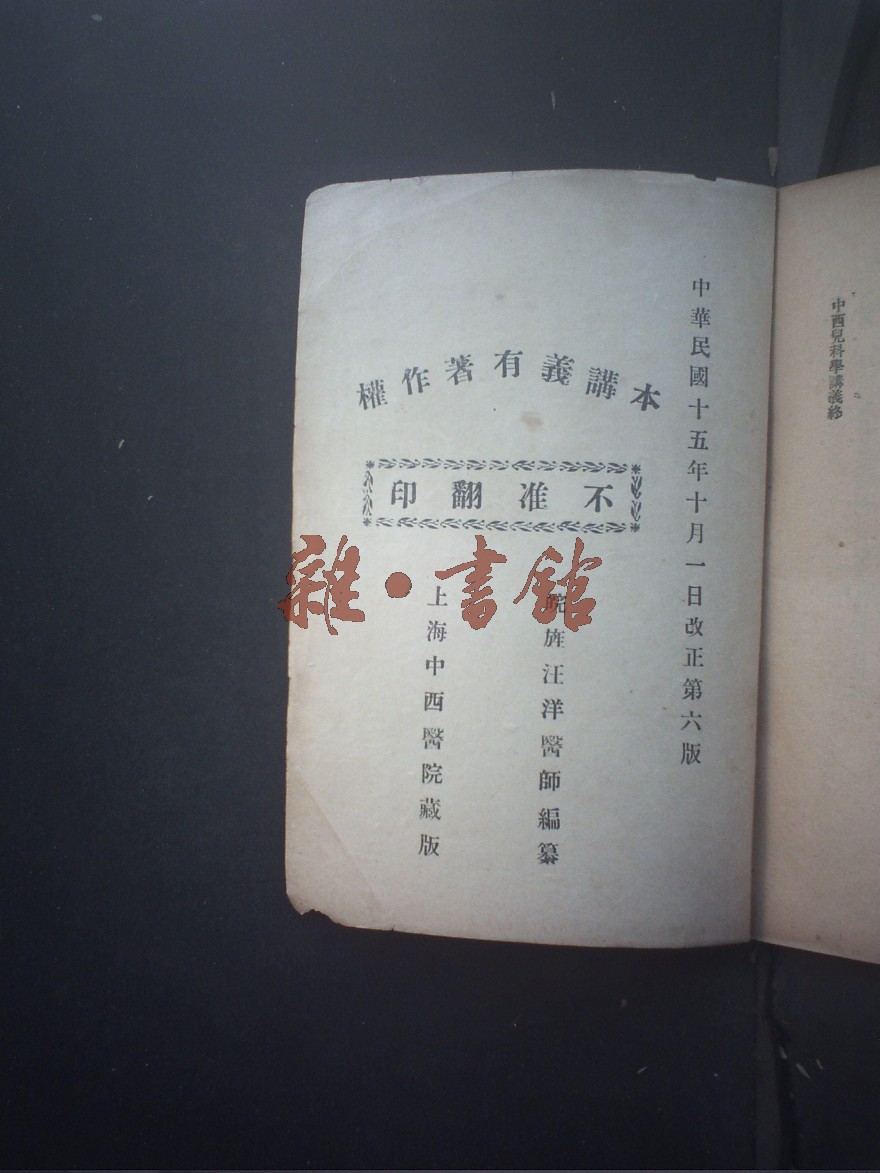 中西兒科學講義終
中華民國十五年十月一日改正第六版
本講義有著作權
不准翻印
皖旌汪洋醫師編纂
上海中西醫院藏版
雜·書館